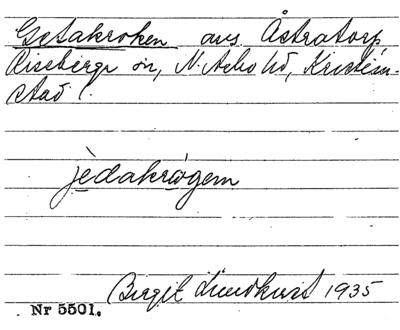 Getakroken avs Åstratorp,
Riseberga sn, N. Asbo hd, Kristian-
stad l.
jèdakrógem
Birgit Lundkvist 1935
Nr 5501.